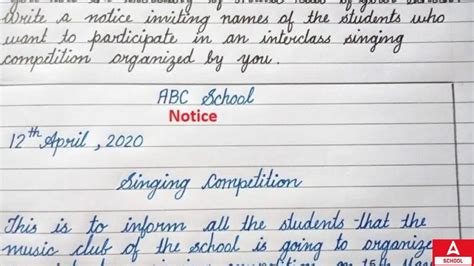 Write a notice inviting names of the students who
want to participate in an interclass singing
competition organized by you.
ABC School
Notice
12th April, 2020
Singing Competition
This is to inform all the students that the
music club of the school is going to organize
A
SCHOOL